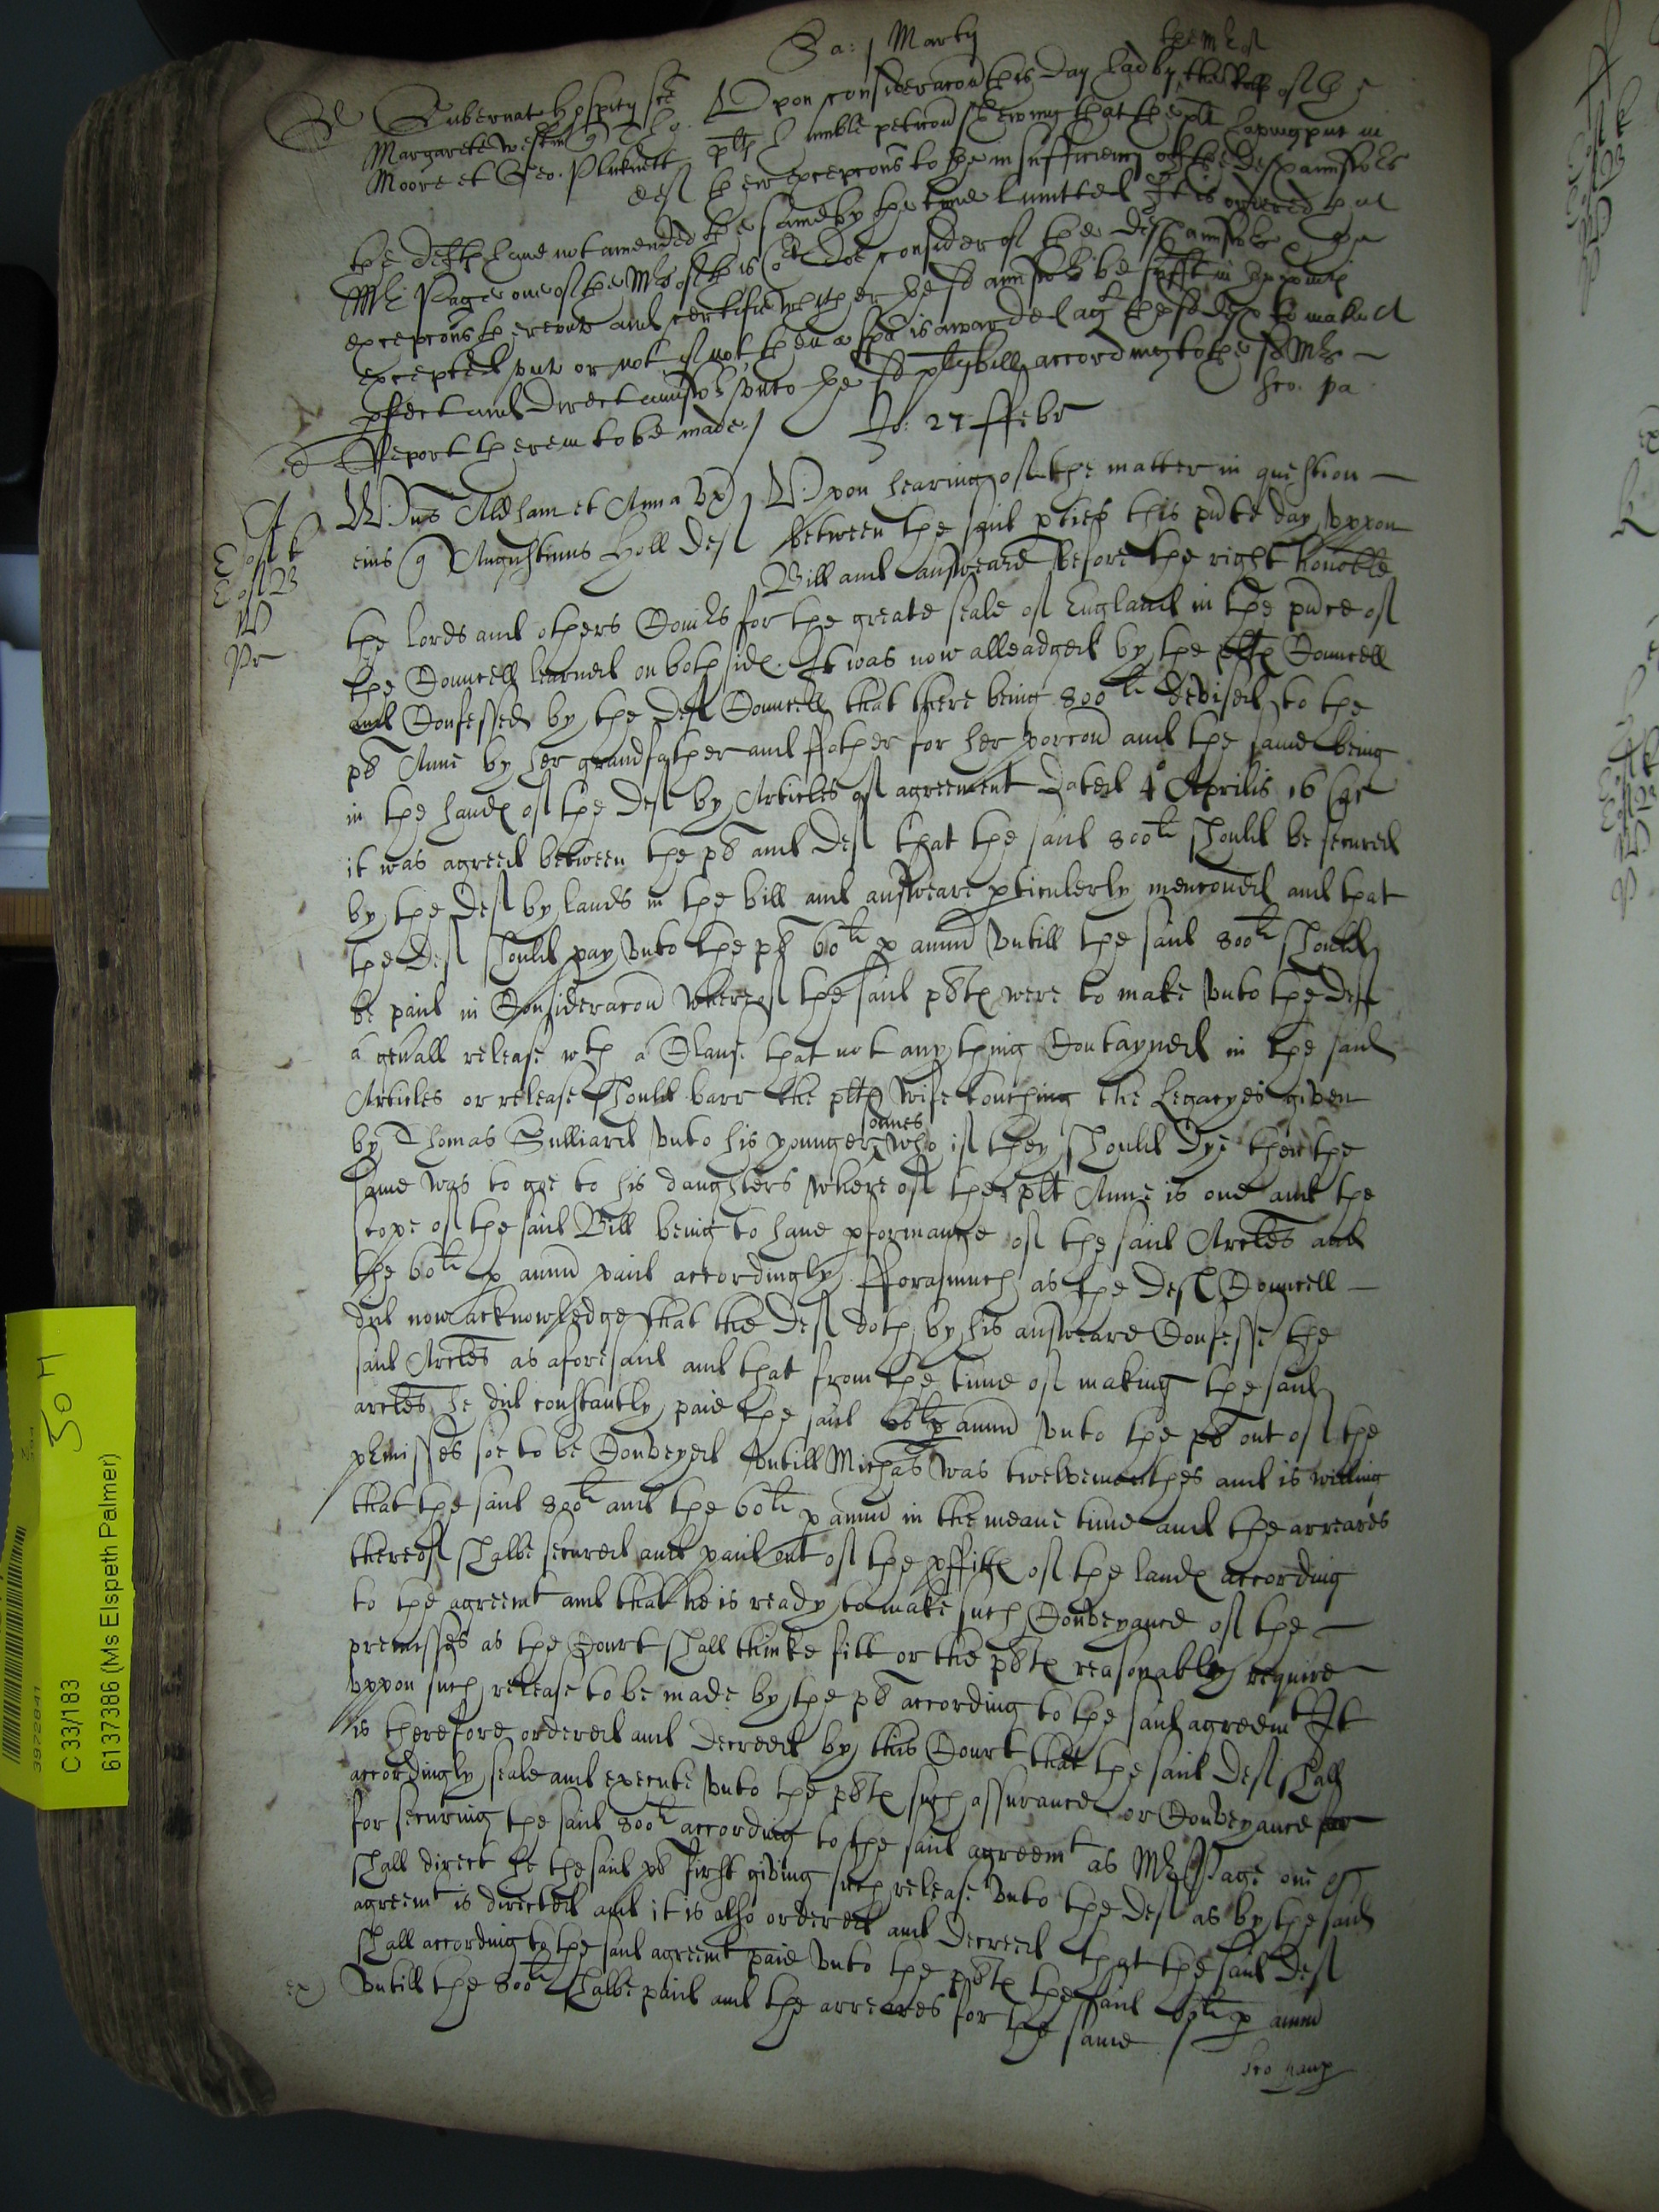 Sa: 1 Martij
Gubernat Hospitij scē Upon consideracon this day had by the
Margarete Westm q Tho. plts humble peticon shewing that the plt having put in
Moore et Geo. Plucknett def their excepcons to the insufficiency of the def answere
the defts have not amended the same by the tyme limitted It is ordered that
Mr Page one of the Mrs of this Cort doe consider of the def answere
excepcons thereunto and certifie whether the sd answere be suffit in the points
excepted unto or not, if not, then a spa is awarded agt the sd def to make a
pfect and direct answere unto the sd plts bill according to the sd Mrs
Report therein to be made /
Jo: 27 ffebr
Willus Aldham et Anna Ux Upon hearing of the matter in question
eius q Augustinus Holl def between the said pties this pnte day uppon
Bill and answeare before the right honoble
the lords and others Comrs for the greate seale of England in the pnce of
the Councell learned on both side. It was now alleadged by the plts Councell
and Confessed by the def Councell that there being 800li devised to the
pt Anne by her grandfather and ffather for her porcon and the same being
in the hands of the def by Articles of agreement dated 4o Aprilis 16 Car
it was agreed between the pt and def that the said 800li should be secured
by the def by lands in the bill and answeare pticulerly menconed and that
the def should pay unto the pt 60li p annu untill the said 800li should
be paid in Consideracon whereof the said plts were to make unto the def
a genall release wth a Clause that not any thing Contayned in the said
Articles or release should barr the plts wife touching the Legacyes given
by Thomas Sulliard unto his younger sonnes who if they should dye then the
same was to goe to his daughters whereof the plt Anne is one and the
scope of the said Bill being to have pformance of the said Arcles and
the 60li p annu paid accordingly. fforasmuch as the def Councell
did now acknowledge that the def doth by his answeare Confesse the
said Arcles as aforesaid and that from the time of making the said
arcles he did constantly paie the said 60li p annu unto the pt out of the
pmisses soe to be Conveyed untill Michas was twelvemonthes and is willing
that the said 800li and the 60li p annu in the meane time and the arreares
thereof shalbe secured and paid out of the pffitts of the lands according
to the agreemt and that he is ready to make such Conveyance of the
premisses as the Court shall thinke fitt or the plts reasonably require
uppon such release to be made by the pt according to the said agreemt It
is therefore ordered and decreed by this Court that the said def shall
accordingly seale and execute unto the plts such assurance or Conveyance
for securing the said 800li according to the said agreemt as Mr Page one of
shall direct he the said pt first giving such release unto the def as by the said
agreemt is directed and it is also ordered and decreed that the said def
shall according to the said agreemt paie unto the plts the said 60li p annu
untill the 800li shalbe paid and the arreares for the same /
C 33/183
6137386 (Ms Elspeth Palmer)
3972841